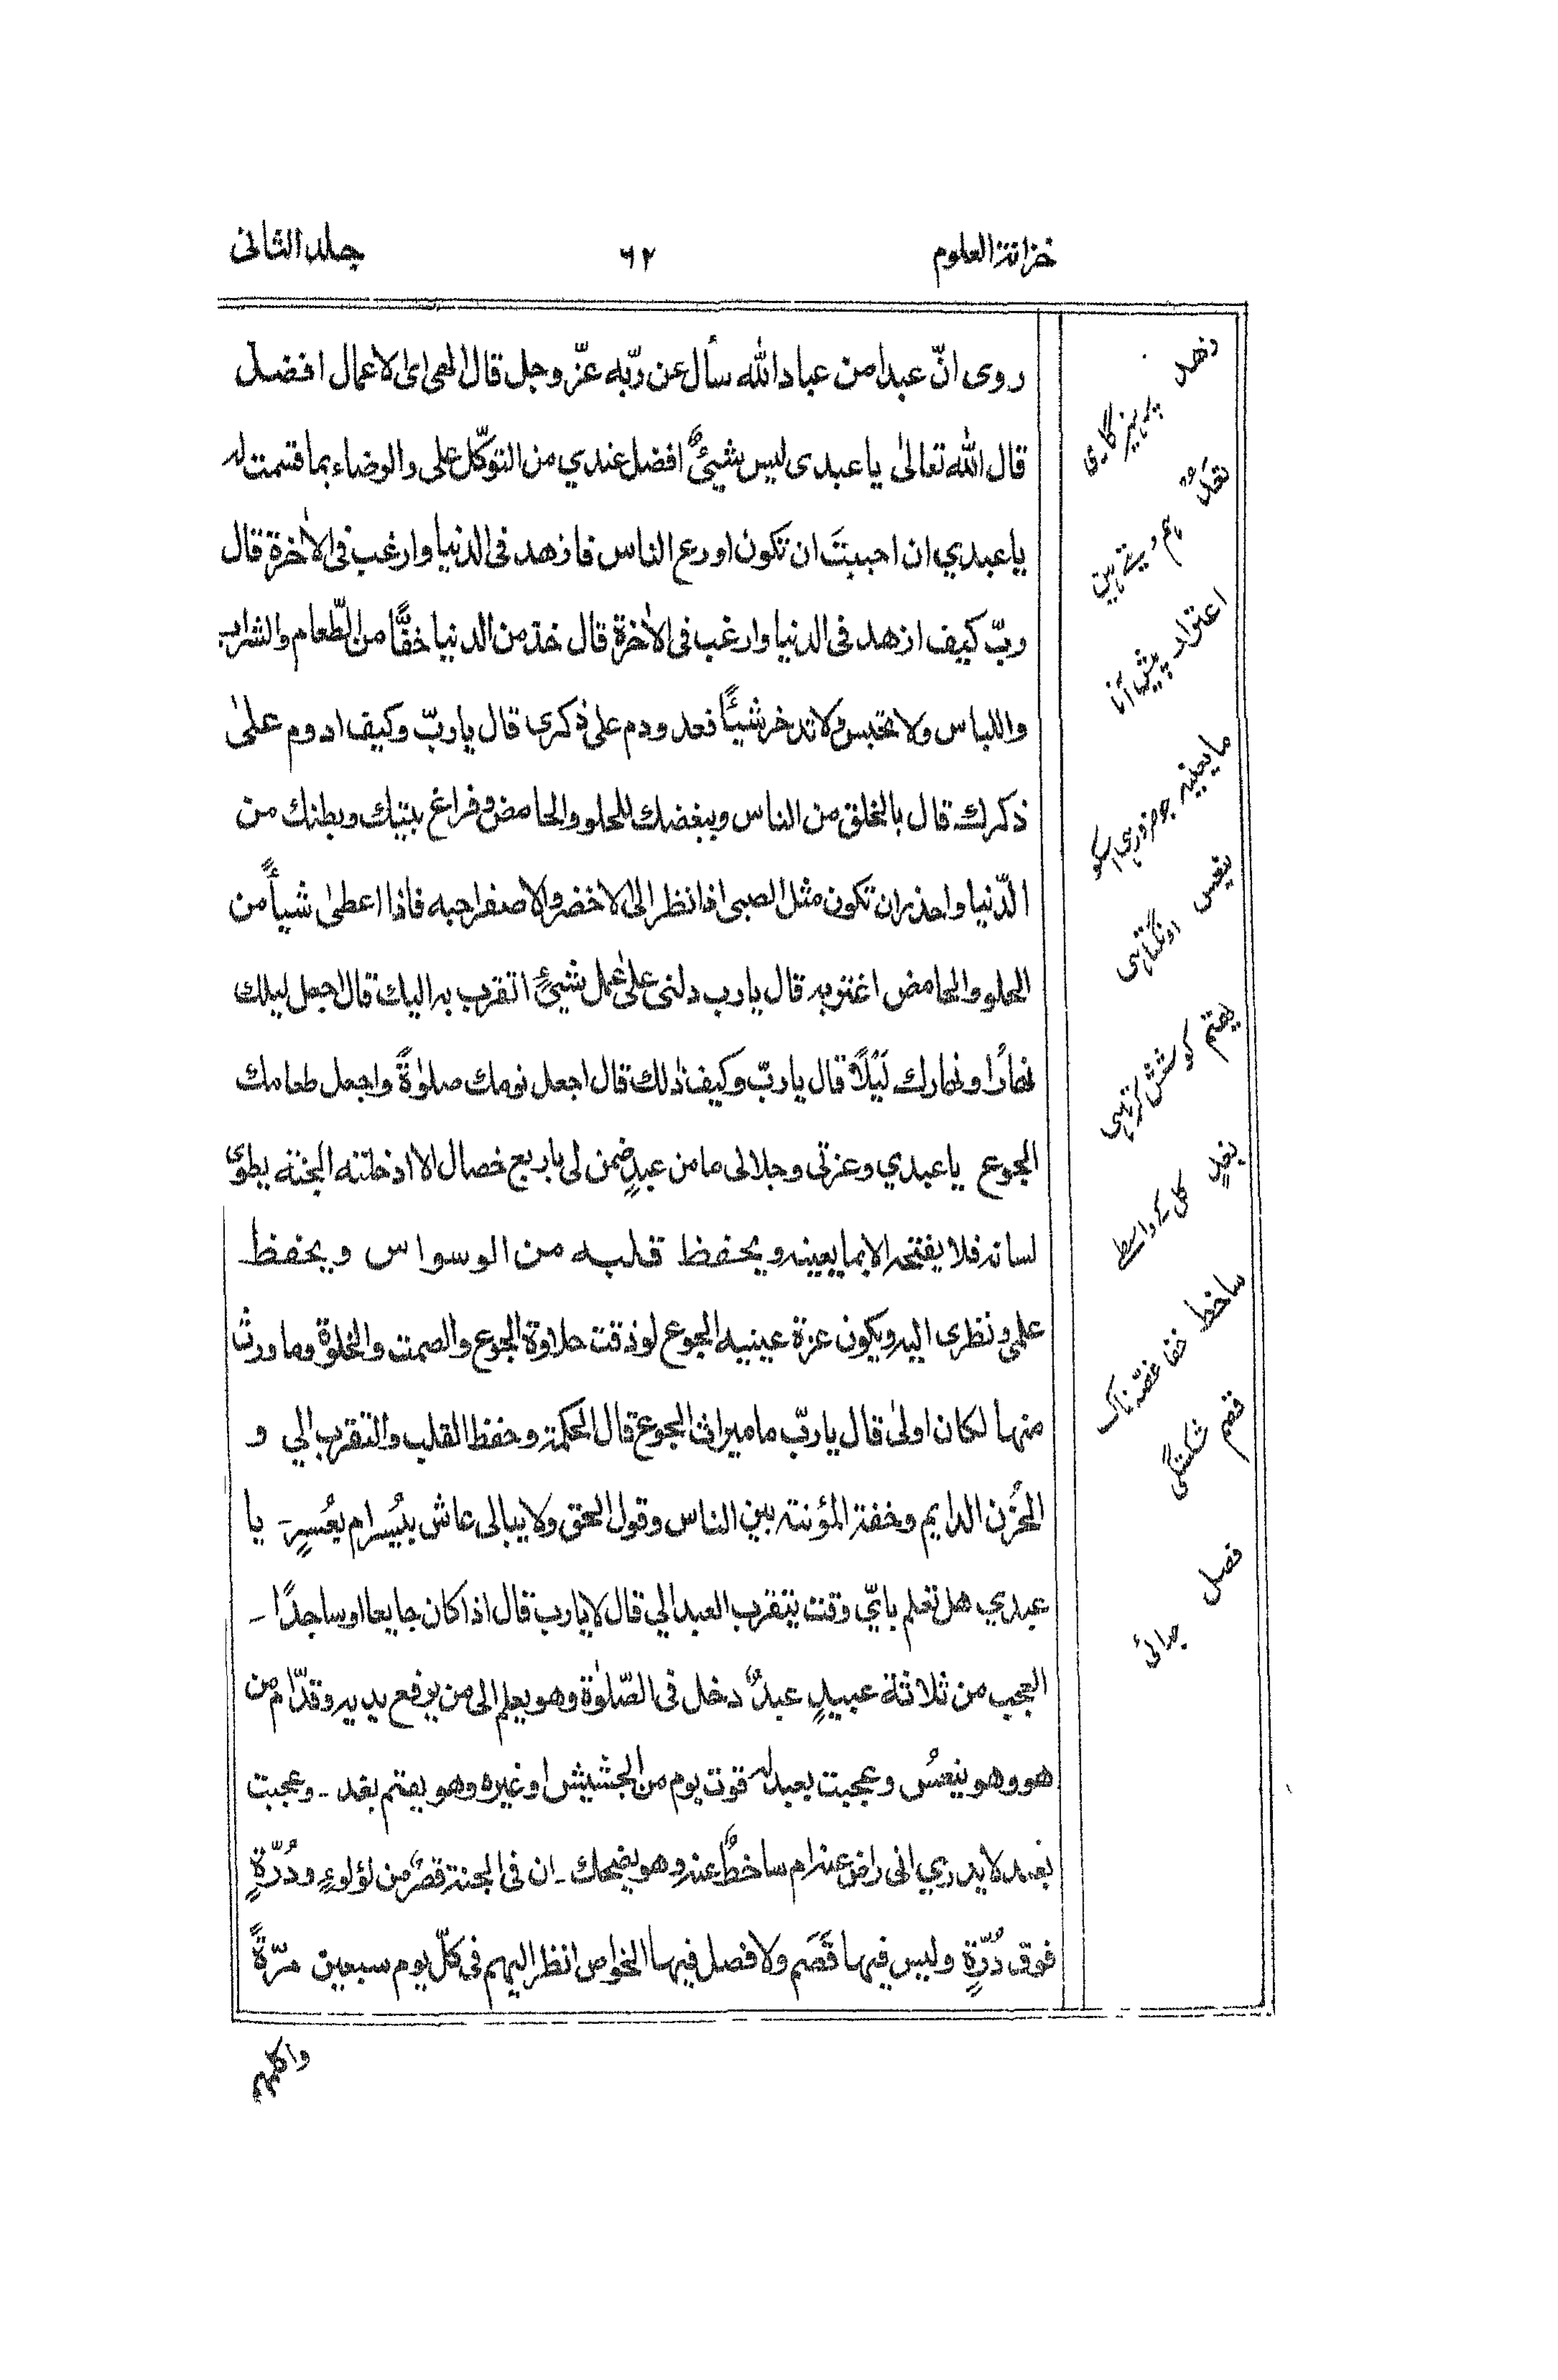 خزانة العلوم ٦٢ جلد الثانی
روی انّ عبدا من عباد الله سأل عن ربّه عزّ وجل قال الهی ای الاعمال افضل
قال الله تعالیٰ یا عبدی لیس شیئٌ افضل عندي من التوکّل علی والرضاء بما قسمت له
یا عبدي ان احببتَ ان تکون اورع الناس فازهد فی الدنیا وارغب فی الاٰخرة قال
ربّ کیف ازهد فی الدنیا وارغب فی الاٰخرة قال خذ من الدنیا خفًّا من الطّعام والشراب
واللباس ولا تحبس ولا تدخر شیئًا فعد ودم علی ذکری قال یا ربّ وکیف ادوم علیٰ
ذکرك قال بالخلق من الناس وبغضك للحلو والحامض وفراغ بیتك وبطنك من
الدّنیا واحذر ان تکون مثل الصبی اذا نظر الی الاخضر والاصفر احبه فاذا اعطیٰ شیأً من
الحلو والحامض اغتر به قال یا رب دلنی علیٰ عمل شیئٍ اتقرب به الیك قال اجعل لیلك
نهارًا ونهارك لَیْلًا قال یا ربّ وکیف ذٰلك قال اجعل نومك صلوٰةً واجعل طعامك
الجوع یا عبدي وعزتی وجلالی ما من عبدٍ ضمن لی باربع خصال الا ادخلته الجنته یطوی
لسانه فلا یفتحه الا بما یعینه ویحفظ قلبه من الوسواس ویحفظ
علمی ونظری الیه ویکون عزة عینیه الجوع لو ذقت حلاوة الجوع والصمت والخلوة وما ورث
منها لکان اولیٰ قال یا ربّ ما میراث الجوع قال الحکمة وحفظ القلب والتقرب الي و
الحُزن الدایم وخفة المؤنته بین الناس وقول الحق ولا یبالی عاش بیُسرام بعُسرٍ۔ یا
عبدي هل تعلم بایّ وقت یتقرب العبد الي قال لا یا رب قال اذا کان جایعا اوساجدًا ۔
العجب من ثلاثة عبیدٍ عبدٌ دخل فی الصّلوٰة وهو یعلم الی من یرفع یدیه وقدّام من
هو وهو ینعسُ وعجبت بعبد له قوت یوم من الحشیش او غیره وهو یهتم بغد ۔ وعجبت
بعبد لا یدري انی راض عنه ام ساخطٌ عنه وهو یضحك ۔ ان فی الجنة قصرٌ من لؤلوءٍ ودُرّةٍ
فوق دُرّةٍ ولیس فیها قَصَم ولا فصل فیها الخواص انظر الیهم فی کلّ یوم سبعین مرّةً
زهد پرہیزگاری
ما یعنیه جو ضروری اسکو
ینعس اونگتا ہی
یهتم کوشش کرتا ہی
بغدٍ کل کے واسطے
ساخط خفا غصّہ ناک
قصم شکستگی
فصل جدائی
واکلمهم